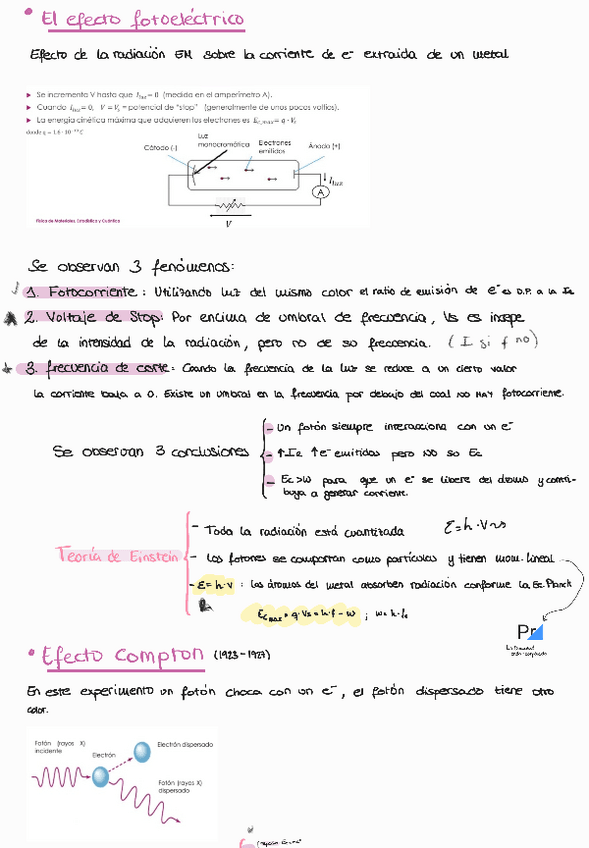 • El efecto fotoeléctrico
Efecto de la radiación EM sobre la corriente de e⁻ extraida de un metal
▶ Se incrementa V hasta que I_luz = 0 (medida en el amperímetro A).
▶ Cuando I_luz = 0, V = Vₛ = potencial de "stop" (generalmente de unos pocos voltios).
▶ La energía cinética máxima que adquieren los electrones es E_c,max = q · Vₛ
donde q = 1.6 · 10⁻¹⁹ C
Cátodo (-)
Luz
monocromática
Electrones
emitidos
Ánodo (+)
I_luz
A
V
Física de Materiales, Estadística y Cuántica
Se observan 3 fenómenos:
1. Fotocorriente: Utilizando luz del mismo color el ratio de emisión de e⁻ es D.P. a la Ie
2. Voltaje de Stop: Por encima de umbral de frecuencia, Vs es indepe
de la intensidad de la radiación, pero no de su frecuencia. (I si f no)
3. frecuencia de corte: Cuando la frecuencia de la luz se reduce a un cierto valor
la corriente baja a 0. Existe un umbral en la frecuencia por debajo del cual NO HAY fotocorriente.
Se observan 3 conclusiones
- Un fotón siempre interacciona con un e⁻
- ↑Ie ↑e⁻ emitidas pero NO su Ec
- Ec>W para que un e⁻ se libere del átomo y contri-
buya a generar corriente.
Teoría de Einstein
- Toda la radiación está cuantizada E=h·V
- Los fotones se comportan como partículas y tienen mom. lineal
- E=h·v : los átomos del metal absorben radiación conforme la Ec. Planck
Ec max = q·Vs = h·f - w ; w = h·f₀
Pr
• Efecto Compton (1923-1927)
En este experimento un fotón choca con un e⁻, el fotón dispersado tiene otro
color.
Fotón (rayos X)
incidente
Electrón
Electrón dispersado
Fotón (rayos X)
dispersado